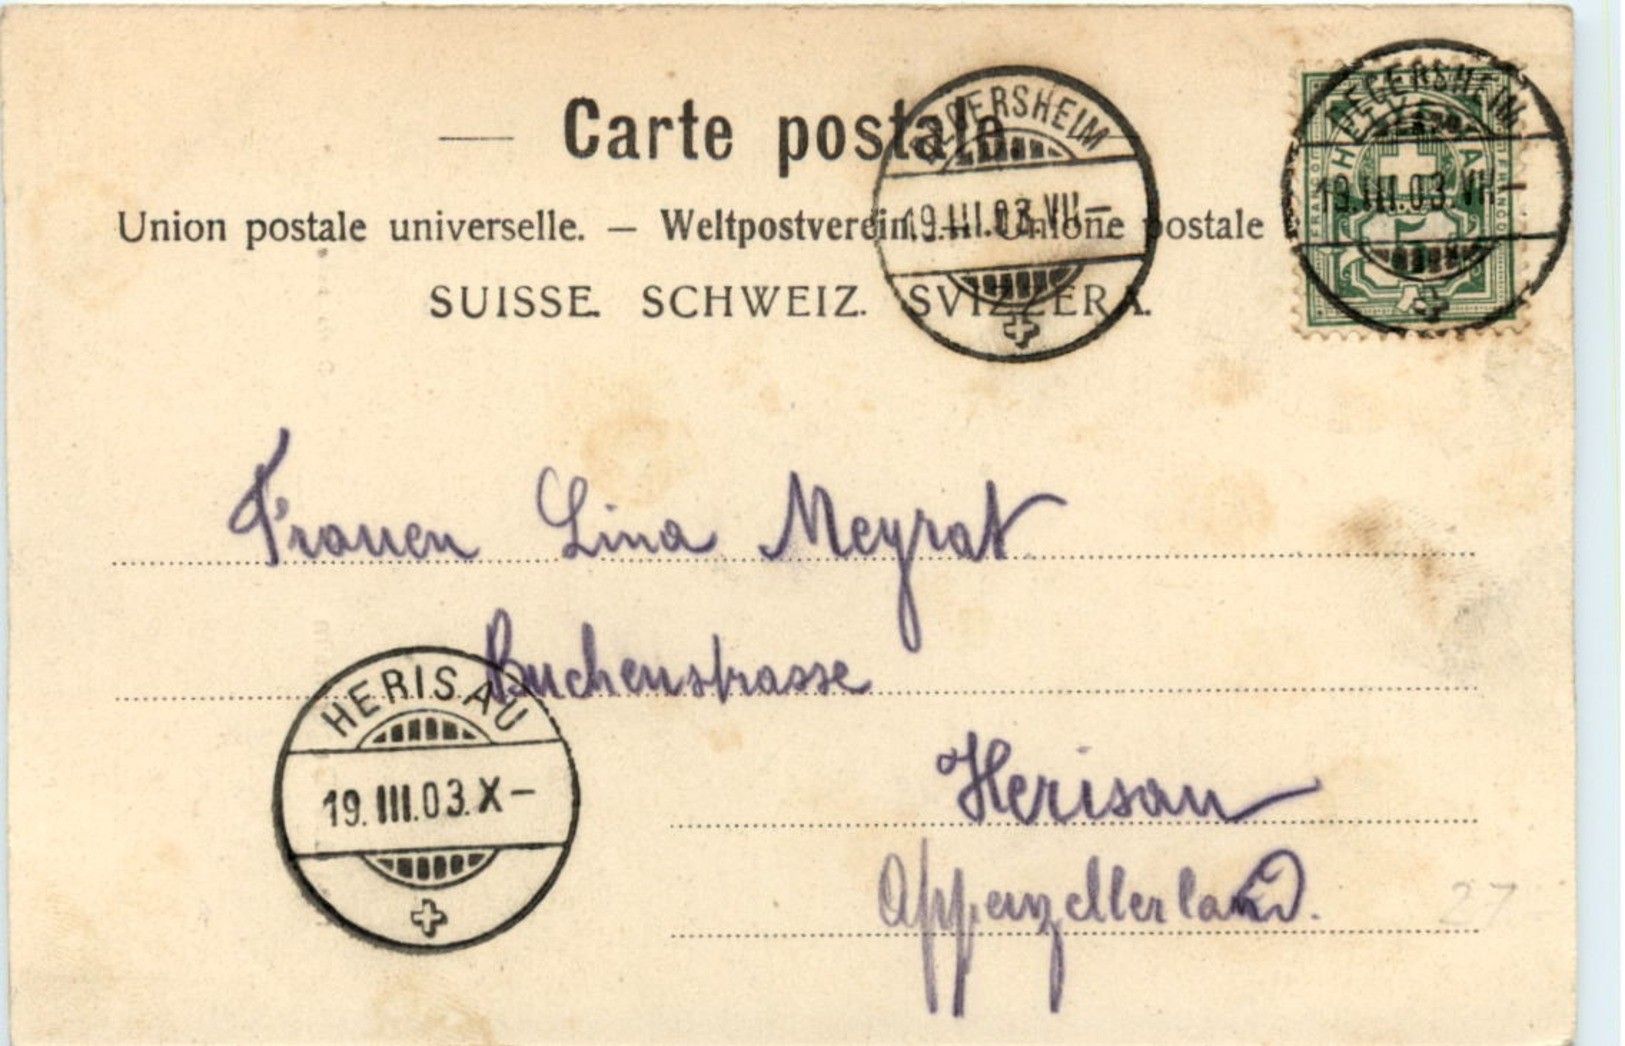 — Carte postale
Union postale universelle. — Weltpostverein. — Unione postale
SUISSE. SCHWEIZ. SVIZZERA.
DEGERSHEIM
19.III.03.VII–
DEGERSHEIM
19.III.03.VII–
FRANCO
HELVETIA
FRANCO
5
Frauen Lina Meyrat
Buchenstrasse
HERISAU
19.III.03.X–
Herisau
Appenzellerland.
27